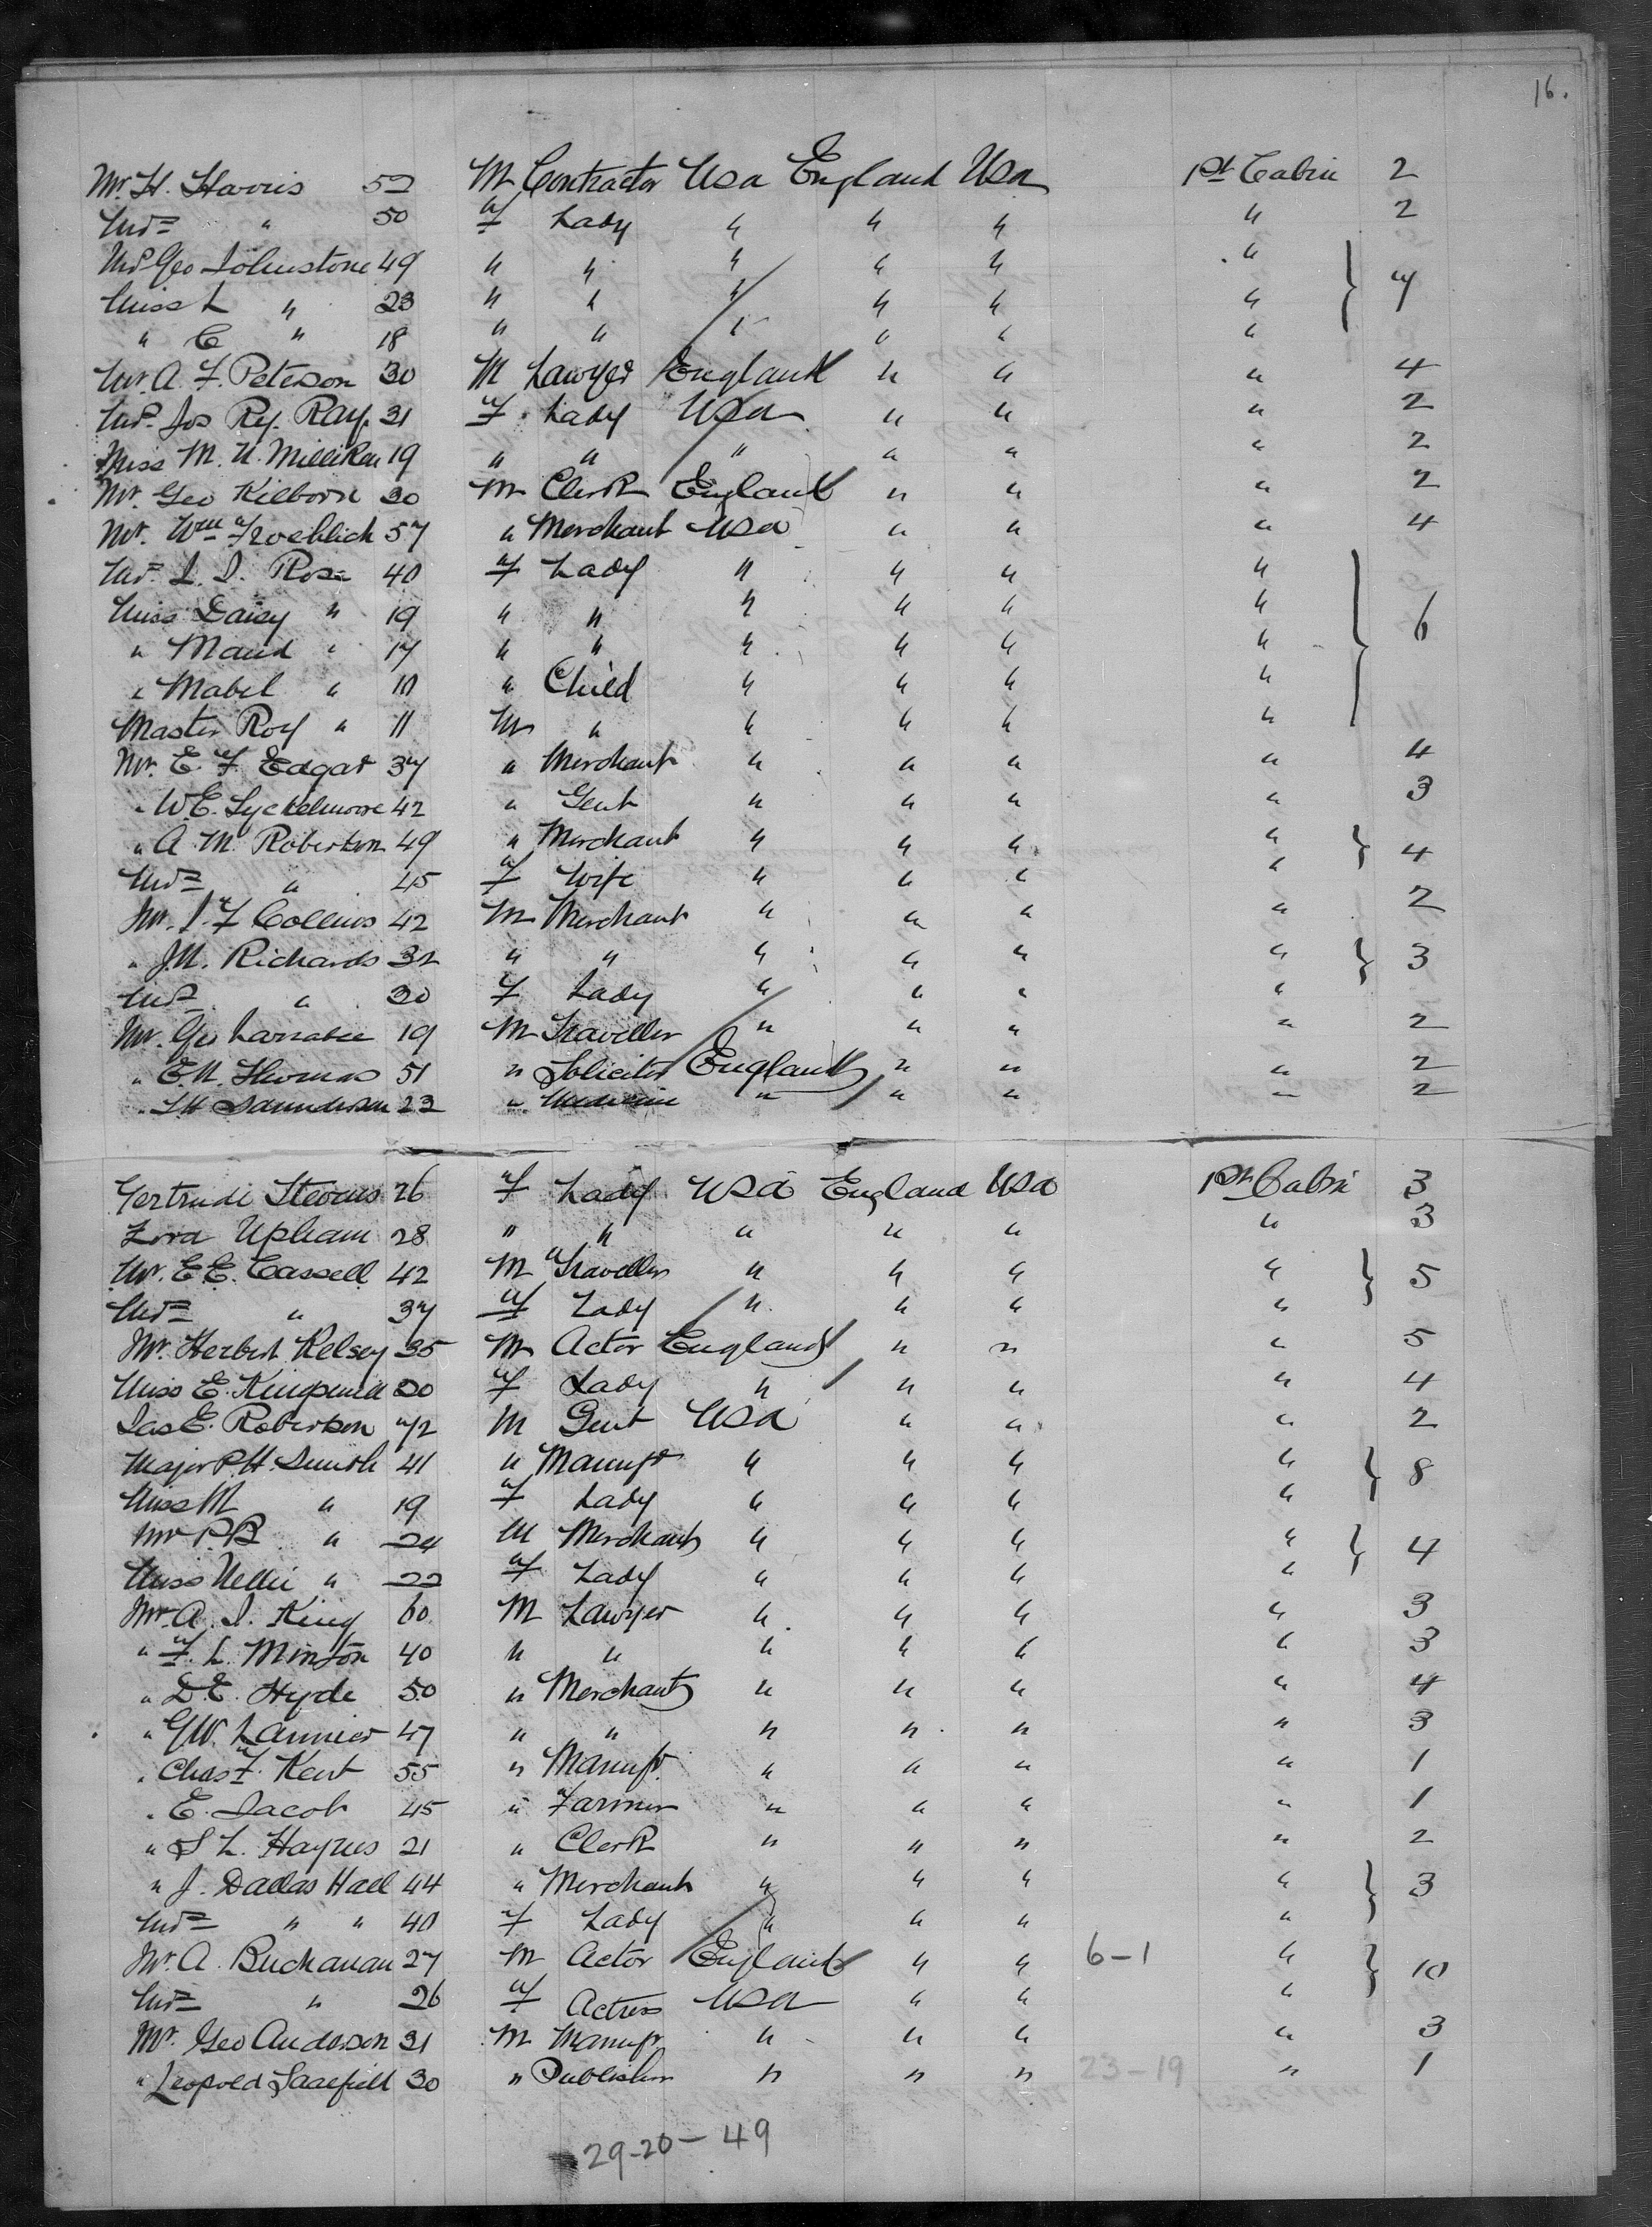 16.
Mr. H. Harris 52 M Contractor Usa England Usa 1st Cabin 2
Mrs " 50 F Lady " " " " 2
Mrs Geo Johnstone 49 " " " " " " } 7
Miss L " 23 " " " " " "
" C " 18 " " " " " "
Mr. A. F. Peterson 30 M Lawyer England " " " 4
Mrs. Jos Ry. Ray. 31 F Lady Usa " " " 2
Miss M. N. Milliken 19 " " " " " " 2
Mr. Geo Kilborn 30 M Clerk England " " " 2
Mr. Wm Froehlich 57 " Merchant Usa " " " 4
Mrs. L. J. Rose 40 F Lady " " " " } 6
Miss Daisy " 19 " " " " " "
" Maud " 17 " " " " " "
" Mabel " 10 " Child " " " "
Master Roy " 11 M " " " " "
Mr. E. F. Edgar 37 " Merchant " " " " 4
" W. E. Lyckelmore 42 " Gent " " " " 3
" A. M. Robertson 49 " Merchant " " " " } 4
Mrs " 45 F Wife " " " "
Mr. J. F Collins 42 M Merchant " " " " 2
" J. N. Richards 32 " " " " " " } 3
Mrs " 30 F Lady " " " "
Mr. Geo Larrabee 19 M Traveller " " " " 2
" E. N. Thomas 51 " Solicitor England " " " 2
" Saunderson 23 " Medicine " " " " 2
Gertrude Stevens 26 F Lady USA England Usa 1st Cabin 3
Zora Upham 28 " " " " " " 3
Mr. E. E. Cassell 42 M Traveller " " " " } 5
Mrs " 37 F Lady " " " "
Mr. Herbert Kelsey 35 M Actor England " " " 5
Miss E. 20 F Lady " " " " 4
Jas E. Robertson 72 M Gent USA " " " 2
Major P. H. Smith 41 " Manufr " " " " } 8
Miss M " 19 F Lady " " " "
Mr P. B. " 24 M Merchant " " " " } 4
Miss Nellie " 22 F Lady " " " "
Mr. A. J. King 60 M Lawyer " " " " 3
" F. L. Minton 40 " " " " " " 3
" D. E. Hyde 50 " Merchant " " " " 4
" G. W. Lannier 47 " " " " " " 3
" Chas F. Kent 55 " Manufr. " " " " 1
" E. Jacob 45 " Farmer " " " " 1
" S L. Haynes 21 " Clerk " " " " 2
" J. Dallas Hall 44 " Merchant " " " " } 3
Mrs " " 40 F Lady " " " "
Mr. A. Buchanan 27 M Actor England " " 6-1 " } 10
Mrs " 26 F Actress USA " " "
Mr. Geo Anderson 31 M Manufr " " " " 3
" Leopold Saalfield 30 " Publisher " " " 23-19 " 1
29-20-49